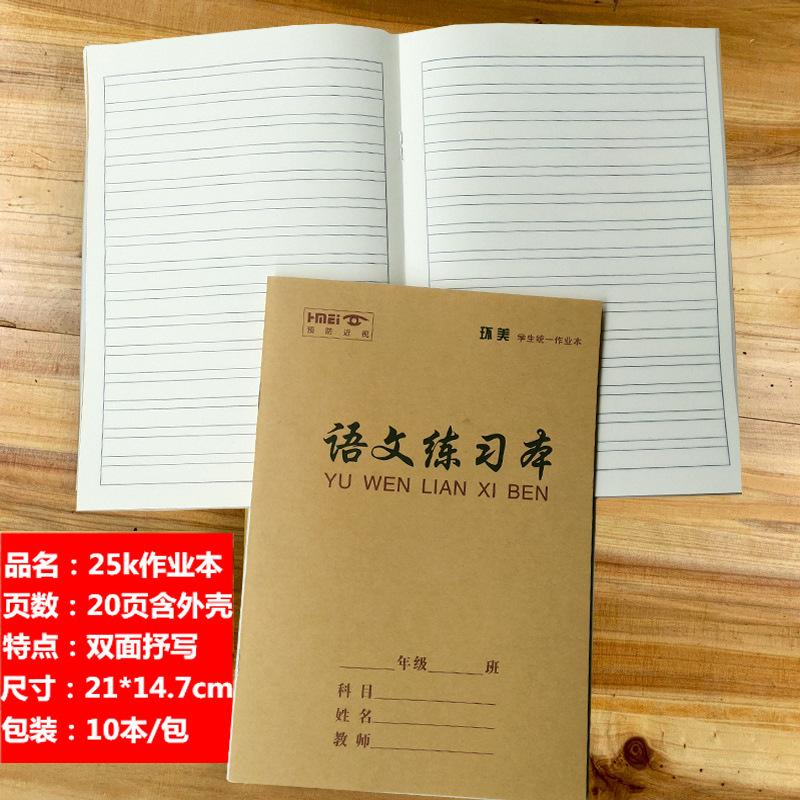 HMEi
预防近视
环美 学生统一作业本
语文练习本
YU WEN LIAN XI BEN
______年级______班
科目____________
姓名____________
教师____________
品名：25k作业本
页数：20页含外壳
特点：双面抄写
尺寸：21*14.7cm
包装：10本/包